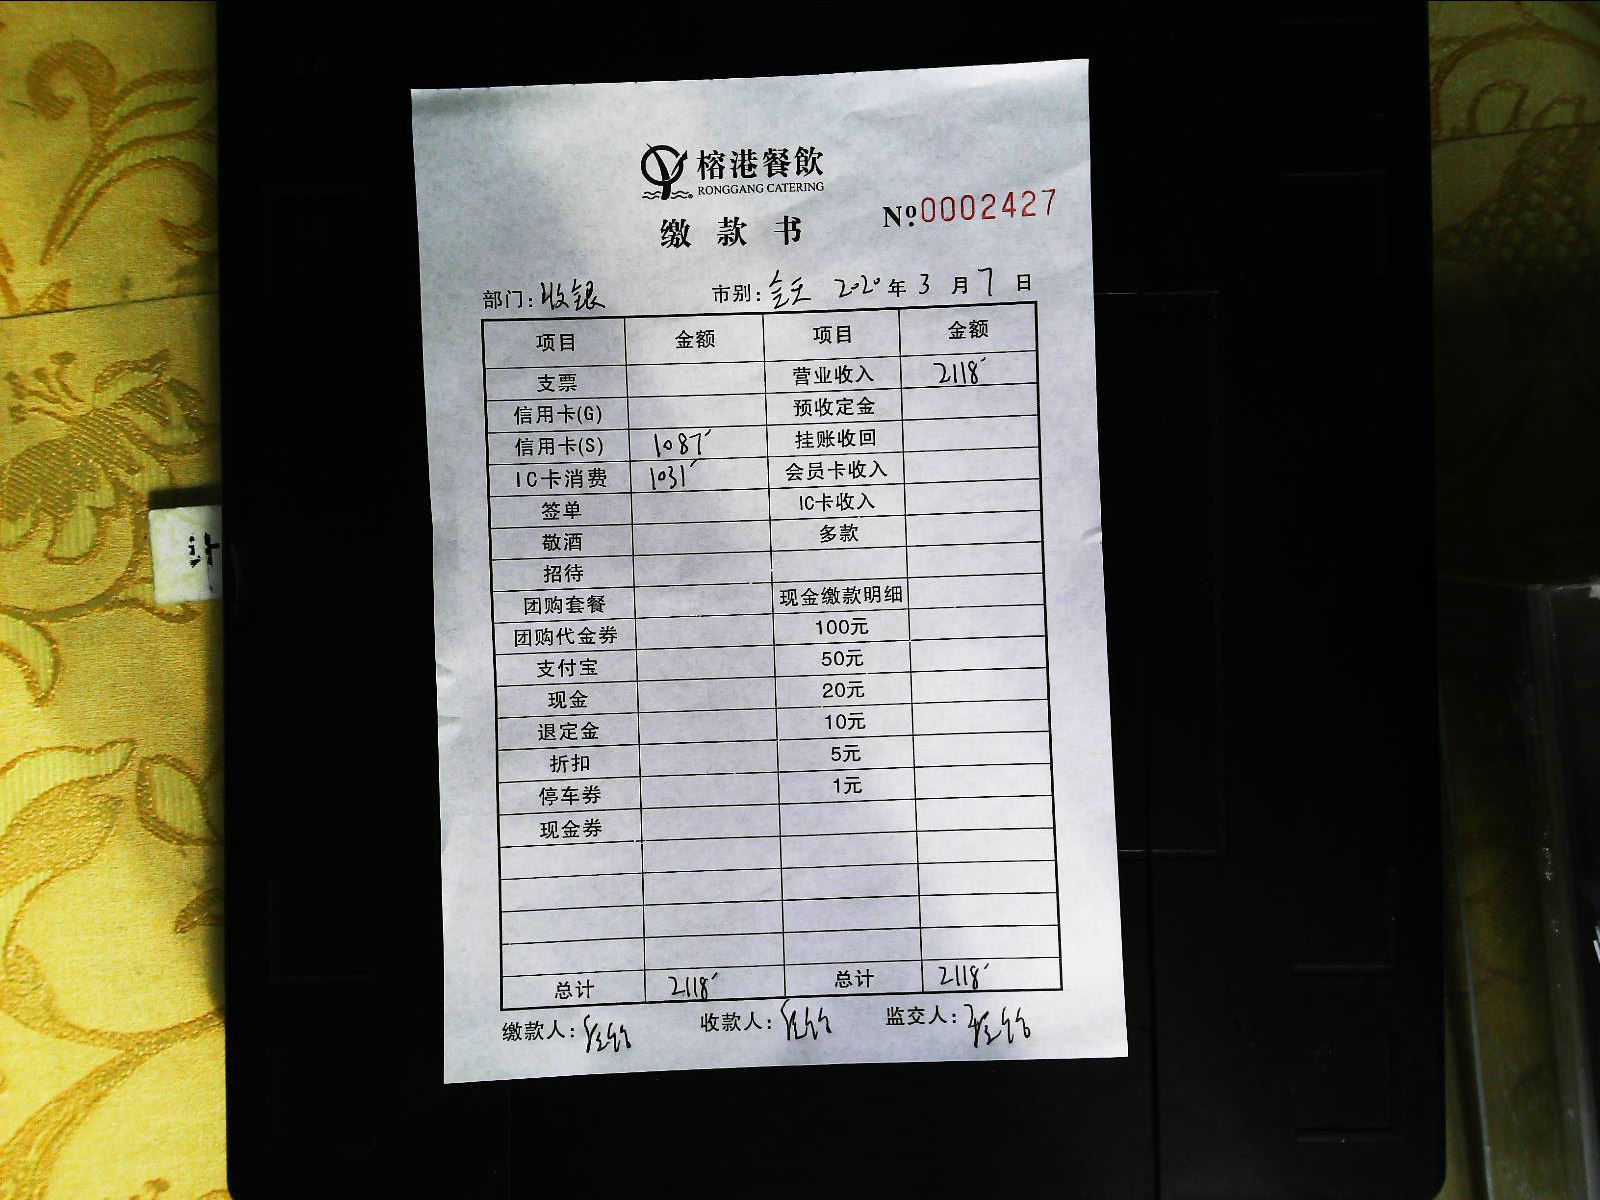 榕港餐飲
RONGGANG CATERING
缴款书
№0002427
部门:收银 市别:全天 2020年3月7日
项目 金额 项目 金额
支票 营业收入 2118
信用卡(G) 预收定金
信用卡(S) 1087 挂账收回
IC卡消费 1031 会员卡收入
签单 IC卡收入
敬酒 多款
招待
团购套餐 现金缴款明细
团购代金券 100元
支付宝 50元
现金 20元
退定金 10元
折扣 5元
停车券 1元
现金券
总计 2118 总计 2118
缴款人: 收款人: 监交人: